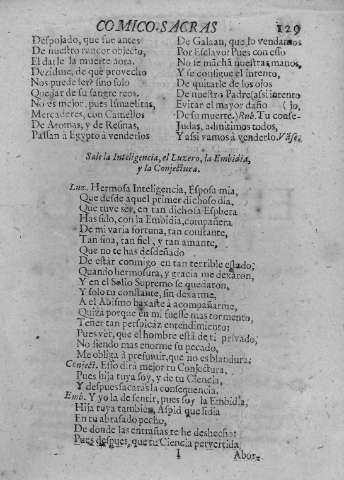 COMICO-SACRAS 129
Despojado, que fue antes
De nuestro rancor objecto,
El darle la muerte aora.
Dezidme, de que provecho
Nos puede ser? sino solo
Quedar de su sangre reos.
No es mejor, pues Ismaelitas,
Mercaderes, con Camellos
De Aromas, y de Resinas,
Passan à Egypto à venderlos
De Galaan, que lo vendamos
Por Esclavo? Pues con esso
No se māchā nuestras manos,
Y se consigue el intento,
De quitarle de los ojos
De nuestro Padre (assi intento
Evitar el mayor daño (jo,
De su muerte.) Rub. Tu conse-
Judas, admitimos todos,
Y assi vamos à venderlo. Vāse.
Sale la Inteligencia, el Luzero, la Embidia,
y la Conjectura.
Luz. Hermosa Inteligencia, Esposa mia,
Que desde aquel primer dichoso dia,
Que tuve ser, en tan dichosa Esphera
Has sido, con la Embidia, compañera
De mi varia fortuna, tan constante,
Tan fina, tan fiel, y tan amante,
Que no te has desdeñado
De estar conmigo en tan terrible estado;
Quando hermosura, y gracia me dexaron,
Y en el Solio Supremo se quedaron,
Y solo tu constante, sin dexarme,
A el Abismo baxaste à acompañarme,
Quizà porque en mi fuesse mas tormento,
Tener tan perspicaz entendimiento;
Pues ver, que el hombre està de ti privado,
No siendo mas enorme su pecado,
Me obliga à presumir, que no es blandura;
Conject. Esso dirà mejor tu Conjectura,
Pues hija tuya soy, y de tu Ciencia,
Y despues sacaràs la consequencia.
Emb. Y yo la de sentir, pues soy la Embidia,
Hija tuya tambien, Aspid que lidia
En tu abrasado pecho,
De donde las entrañas te he deshecho:
Pues despues, que tu Ciencia pervertida
I Abor-